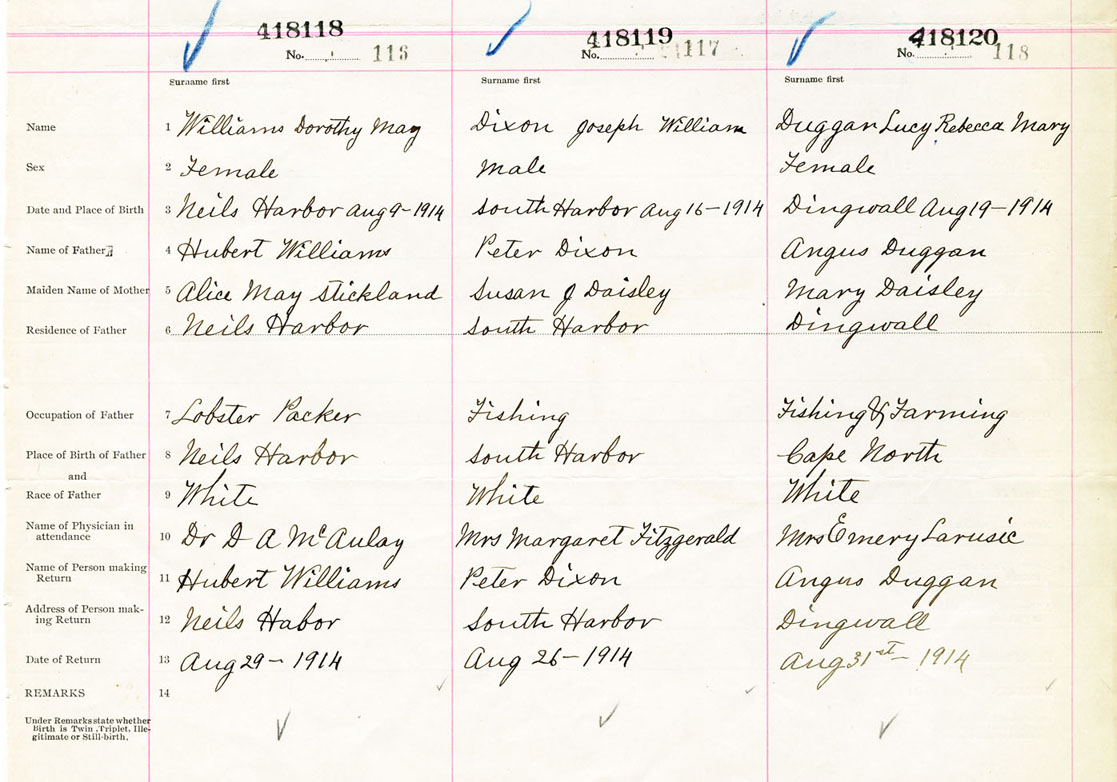 418118 418119 418120
No. 116 No. 117 No. 118
Surname first Surname first Surname first
Name 1 Williams Dorothy May Dixon Joseph William Duggan Lucy Rebecca Mary
Sex 2 Female Male Female
Date and Place of Birth 3 Neils Harbor Aug 9-1914 South Harbor Aug 16-1914 Dingwall Aug 19-1914
Name of Father 4 Hubert Williams Peter Dixon Angus Duggan
Maiden Name of Mother 5 Alice May Stickland Susan J Daisley Mary Daisley
Residence of Father 6 Neils Harbor South Harbor Dingwall
Occupation of Father 7 Lobster Packer Fishing Fishing & Farming
Place of Birth of Father 8 Neils Harbor South Harbor Cape North
and
Race of Father 9 White White White
Name of Physician in
attendance 10 Dr D A McAulay Mrs Margaret Fitzgerald Mrs Emery Larusic
Name of Person making
Return 11 Hubert Williams Peter Dixon Angus Duggan
Address of Person mak-
ing Return 12 Neils Habor South Harbor Dingwall
Date of Return 13 Aug 29-1914 Aug 26-1914 Aug 31st-1914
REMARKS 14
Under Remarks state whether
Birth is Twin, Triplet, Ille-
gitimate or Still-birth.